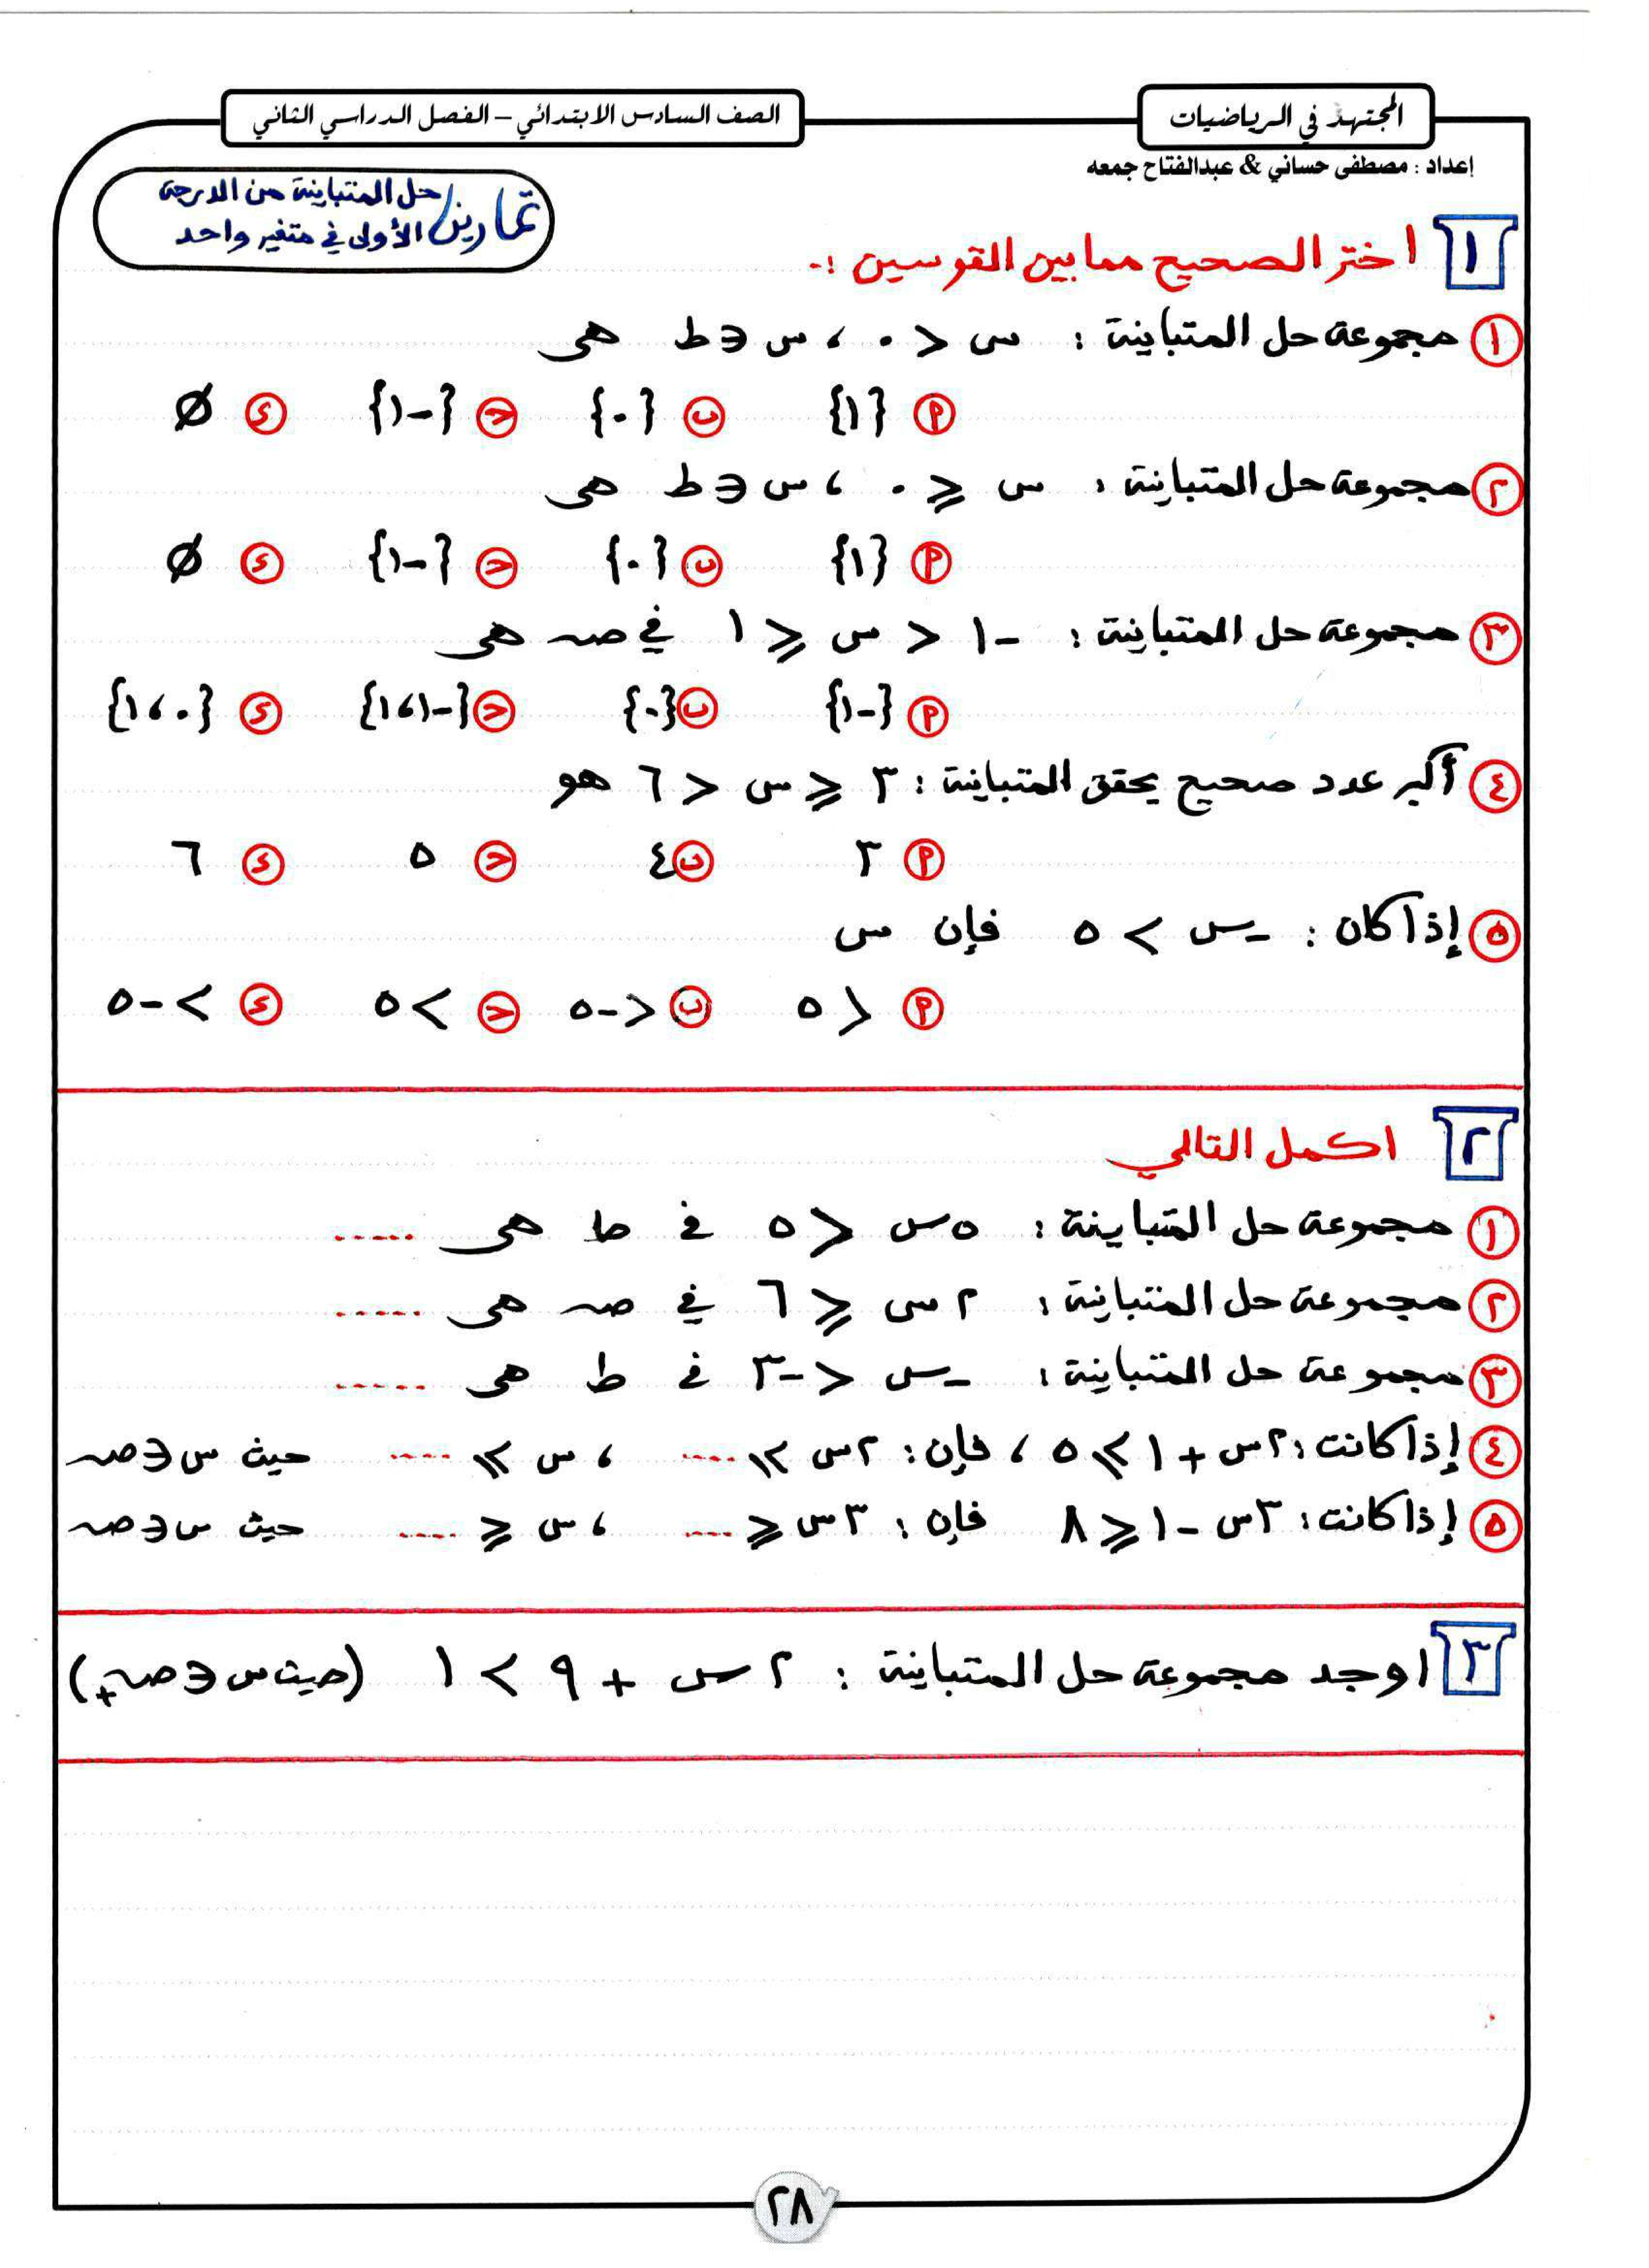 المجتهد في الرياضيات
الصف السادس الابتدائي – الفصل الدراسي الثاني
إعداد : مصطفى حساني & عبدالفتاح جمعه
تمارين حل المتباينة من الدرجة الأولى في متغير واحد
١ اختر الصحيح مما بين القوسين :-
١ مجموعة حل المتباينة : س < ٠ ، س ∈ ط هى
أ {١} ب {٠} ح {-١} ء ∅
٢ مجموعة حل المتباينة : س ≤ ٠ ، س ∈ ط هى
أ {١} ب {٠} ح {-١} ء ∅
٣ مجموعة حل المتباينة : -١ < س ≤ ١ في صـ هى
أ {-١} ب {٠} ح {-١،١} ء {٠،١}
٤ أكبر عدد صحيح يحقق المتباينة : ٣ ≤ س < ٦ هو
أ ٣ ب ٤ ح ٥ ء ٦
٥ إذا كان : -س > ٥ فإن س
أ < ٥ ب < -٥ ح > ٥ ء > -٥
٢ اكمل التالي
١ مجموعة حل المتباينة : ٥س < ٥ في ط هى .....
٢ مجموعة حل المتباينة : ٢س ≤ ٦ في صـ هى .....
٣ مجموعة حل المتباينة : -س < -٣ في ط هى .....
٤ إذا كانت : ٢س + ١ ≥ ٥ ، فإن : ٢س ≥ .... ، س ≥ .... حيث س ∈ صـ
٥ إذا كانت : ٣س - ١ ≤ ٨ فإن : ٣س ≤ .... ، س ≤ .... حيث س ∈ صـ
٣ اوجد مجموعة حل المتباينة : ٢س + ٩ > ١ (حيث س ∈ صـ+)
٢٨